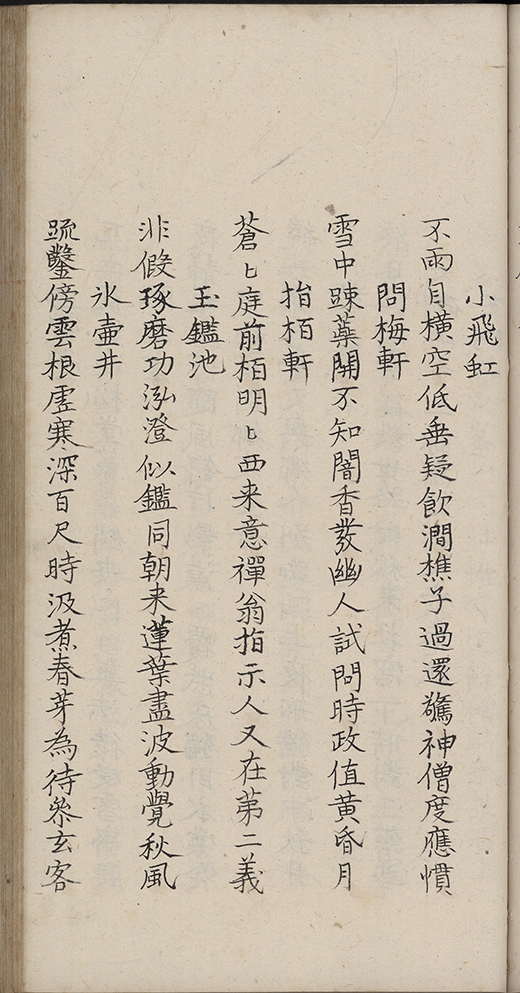 小飛虹
不雨自橫空低垂疑飲澗樵子過還驚神僧度應慣
問梅軒
雪中踈蘂開不知闇香發幽人試問時政值黃昏月
指栢軒
蒼〻庭前栢明〻西来意禪翁指示人又在苐二義
玉鑑池
非假琢磨功泓澄似鑑同朝来蓮葉盡波動覺秋風
氷壷井
䟽鑿傍雲根虛寒深百尺時汲煮春芽為待叅玄客